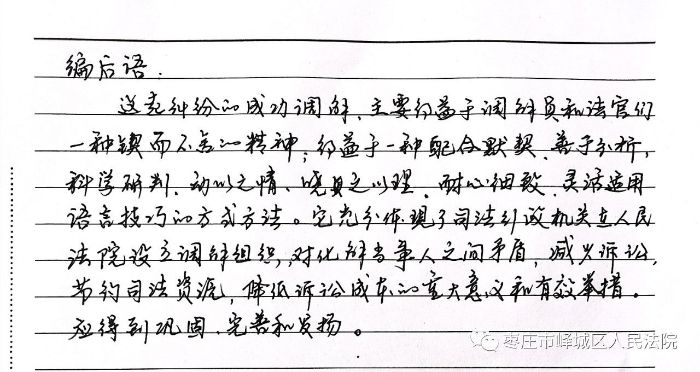 编后语.
这起纠纷的成功调解,主要得益于调解员和法官们
一种锲而不舍的精神;得益于一种配合默契、善于分析,
科学研判、动以之情、晓其之以理、耐心细致、灵活适用
语言技巧的方式方法。它充分体现了司法行政机关在人民
法院设立调解组织,对化解当事人之间矛盾,减少诉讼,
节约司法资源,降低诉讼成本的重大意义和有效举措。
应得到巩固、完善和发扬。
枣庄市峄城区人民法院